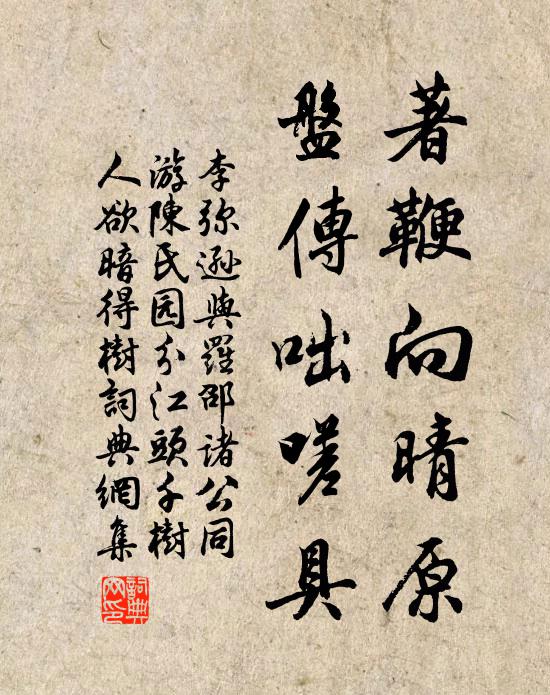 著鞭向晴原
盤傳咄嗟具
李弥遜與羅邵諸公同
游陳氏园分江頭千樹
人欲暗得樹詞典網集
詞典
网印